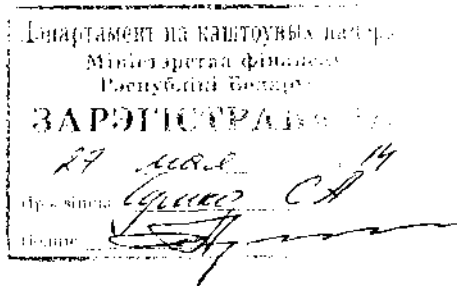 Дэпартамент па каштоўных паперах
Міністэрства фінансаў
Рэспублікі Беларусь
ЗАРЭГІСТРАВАНА
27 мая 14
Прозвішча С А
Подпіс